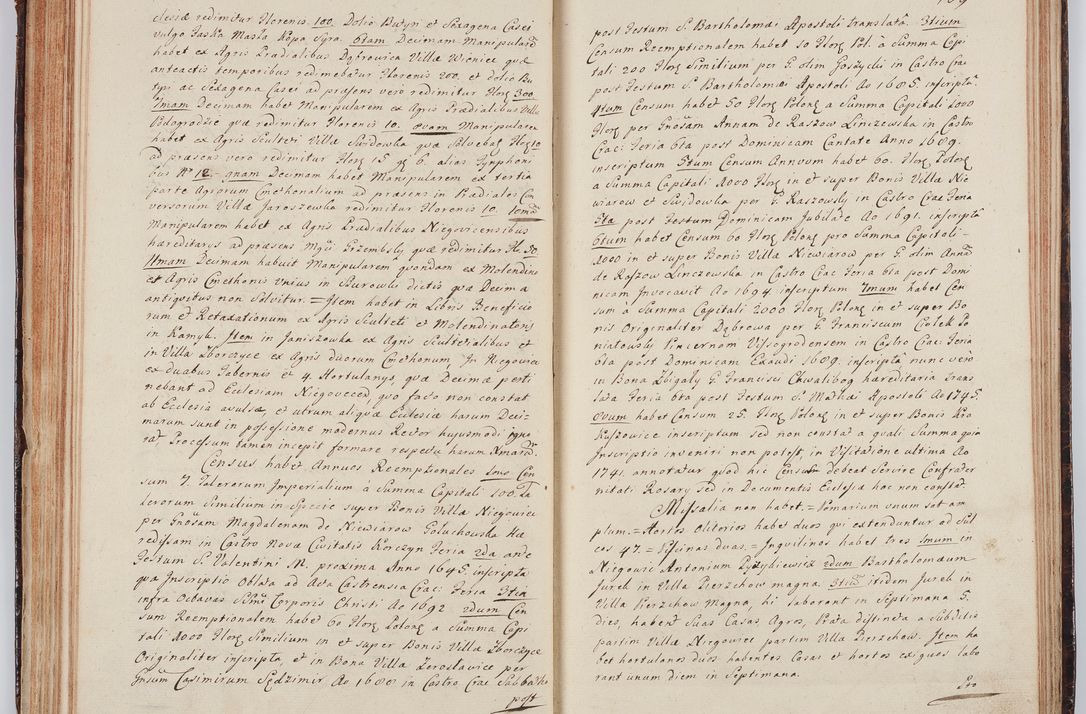 clesiæ redimitur Florenis. 100. Dolio Butyri et Sexagena Casei
vulgo Faska Masła Kopa Syra. 6tam Decimam Manipularem
habet ex Agris Prædialibus Dąbrovica Villæ Wieniec quæ
anteactis temporibus redimebatur Florenis 200. et dolio Bu
tyri ac Sexagena Casei ad præsens vero redimitur Flor 300.
7mam Decimam habet Manipularem ex Agris Prædialibus Villæ
Podogrodzie quæ redimitur Florenis 10. 8vam Manipularem
habet ex Agris Sculteti Villæ Surdowka quæ solvebat Flor 10
ad præsens vero redimitur Flor 15 g 6. alias Tynphoni
bus No 12. 9nam Decimam habet Manipularem ex tertia
parte Agrorum Cmethonalium ad præsens in Prædiales Con
versorum Villæ Jaroszewka redimitur Florenis 10. 10mam
Manipularem habet ex Agris Prædialibus Niegovicensibus
hæreditarys ad præsens Mgci Grzembsky quæ redimitur Fl. 50.
11mam Decimam habuit Manipularem quondam ex Molendino
et Agris Cmethonis Unius in Surowki dictis quæ Decima
antiqvitus non solvitur. = Item habet in Libris Beneficio
rum et Retaxationum ex Agris Sculteti et Molendinatoris
in Kamyk. Item in Janiszowka ex Agris Scultetialibus et
in Villa Zborczyce ex Agris duorum Cmethonum In Niegovici
ex duabus Tabernis et 4. Hortulanys, quæ Decimæ perti
nebant ad Ecclesiam Niegoveced quo facto non constat
ab Ecclesia avulsæ, et utrum aliquæ Ecclesiæ harum Deci-
marum sunt in possessione modernus Rector hujusmodi igno
rat Processum tamen incepit formare respectu harum Xmarum.
Census habet Annuos Reemptionales 1mo Cen
sum 7. Talerorum Imperialium à Summa Capitali 100. Ta
lerorum Similium in Specie super Bonis Villæ Niegovici
per Gnosam Magdalenam de Niewiarow Goluchowska Hæ
redissam in Castro Novæ Civitatis Korczyn Feria 2da ante
Festum S. Valentini M. proxima Anno 1645. inscripta
qua Inscriptio Oblata ad Acta Castrensia Crac: Feria 3tia
infra Octavas Ssmi Corporis Christi Ao 1692 2dum Cen
sum Reemptionalem habet 60 Flor Polong a Summa Capi
tali 1000 Flor Similium in et super Bonis Villæ Zborczyce
Originaliter inscripta, et in Bona Villæ Zoroslavice per
Gnsum Casimirum Sędzimir Ao 1688 in Castro Crac Sabbatho
post
post Festum S. Bartholomæi Apostoli translata. 3tium
Censum Reemptionalem habet 50 Flor Pol. à Summa Capi
tali 200 Flor Similium per G. olim Goszycki in Castro Crac
post Festum S. Bartholomæi Apostoli Ao 1685. inscripta
4tum Censum habet 50 Flor Polong a Summa Capitali 1000
Flor per Gnosam Annam de Raszow Linczewska in Castro
Crac: Feria 6ta post Dominicam Cantate Anno 1689.
inscriptum 5tum Censum Annuum habet 60. Flor Polong
a Summa Capitali 1000 Flor in et super Bonis Villæ Nie
wiarow et Swidowka per G. Raszowsky in Castro Crac Feria
6ta post Festum Dominicam Jubilate Ao 1691. inscripta
6tum habet Censum 60 Flor Polong pro Summa Capitali-
1000 in et super Bonis Villæ Niewiarow per G. olim Annam
de Raszow Linczewska in Castro Crac Feria 6ta post Domi
nicam Invocavit Ao 1694 inscriptum 7mum habet Cen
sum à Summa Capitali 2000 Flor Polong in et super Bo
nis Originaliter Dąbrowa per G. Franciscum Ciołek Po
niatowsky Pincernam Vissogrodensem in Castro Crac Feria
6ta post Dominicam Exaudi 1689. inscripta nunc vero
in Bona Zbigały G. Francisci Chwalibog hæreditaria trans
lata Feria 6ta post Festum S. Mathæi Apostoli Ao 1745.
8vum habet Censum 25. Flor Polong in et super Bonis Kra
kuszowice inscriptum sed non constat a quali Summa quia
Inscriptio inveniri non potest, in Visitatione ultima Ao
1741. annotatur quod hic Census debeat servire Confrater
nitati Rosary sed in Documentis Ecclesiæ hoc non constat.
Missalia non habet. = Pomarium unum sat am
plum. = Hortos Olitorios habet duos qui extenduntur ad Sul
cos 47. = Piscinas duas. = Inquilinos habet tres 1mum in
Niegovic Antonium Pyzykiewicz 2dum Bartholomæum
Jurek in Villa Pierzchow magna. 3tium itidem Jurek in
Villa Pierzchow Magna, hi laborant in Septimana 5.
dies, habent suas Casas, Agros, Prata distincta a Subditis
partim Villæ Niegoviec partim Villæ Pierzchow. Item ha
bet hortulanos duos habentes Casas et hortos exiguos labo
rant unum diem in Septimana.
Pro